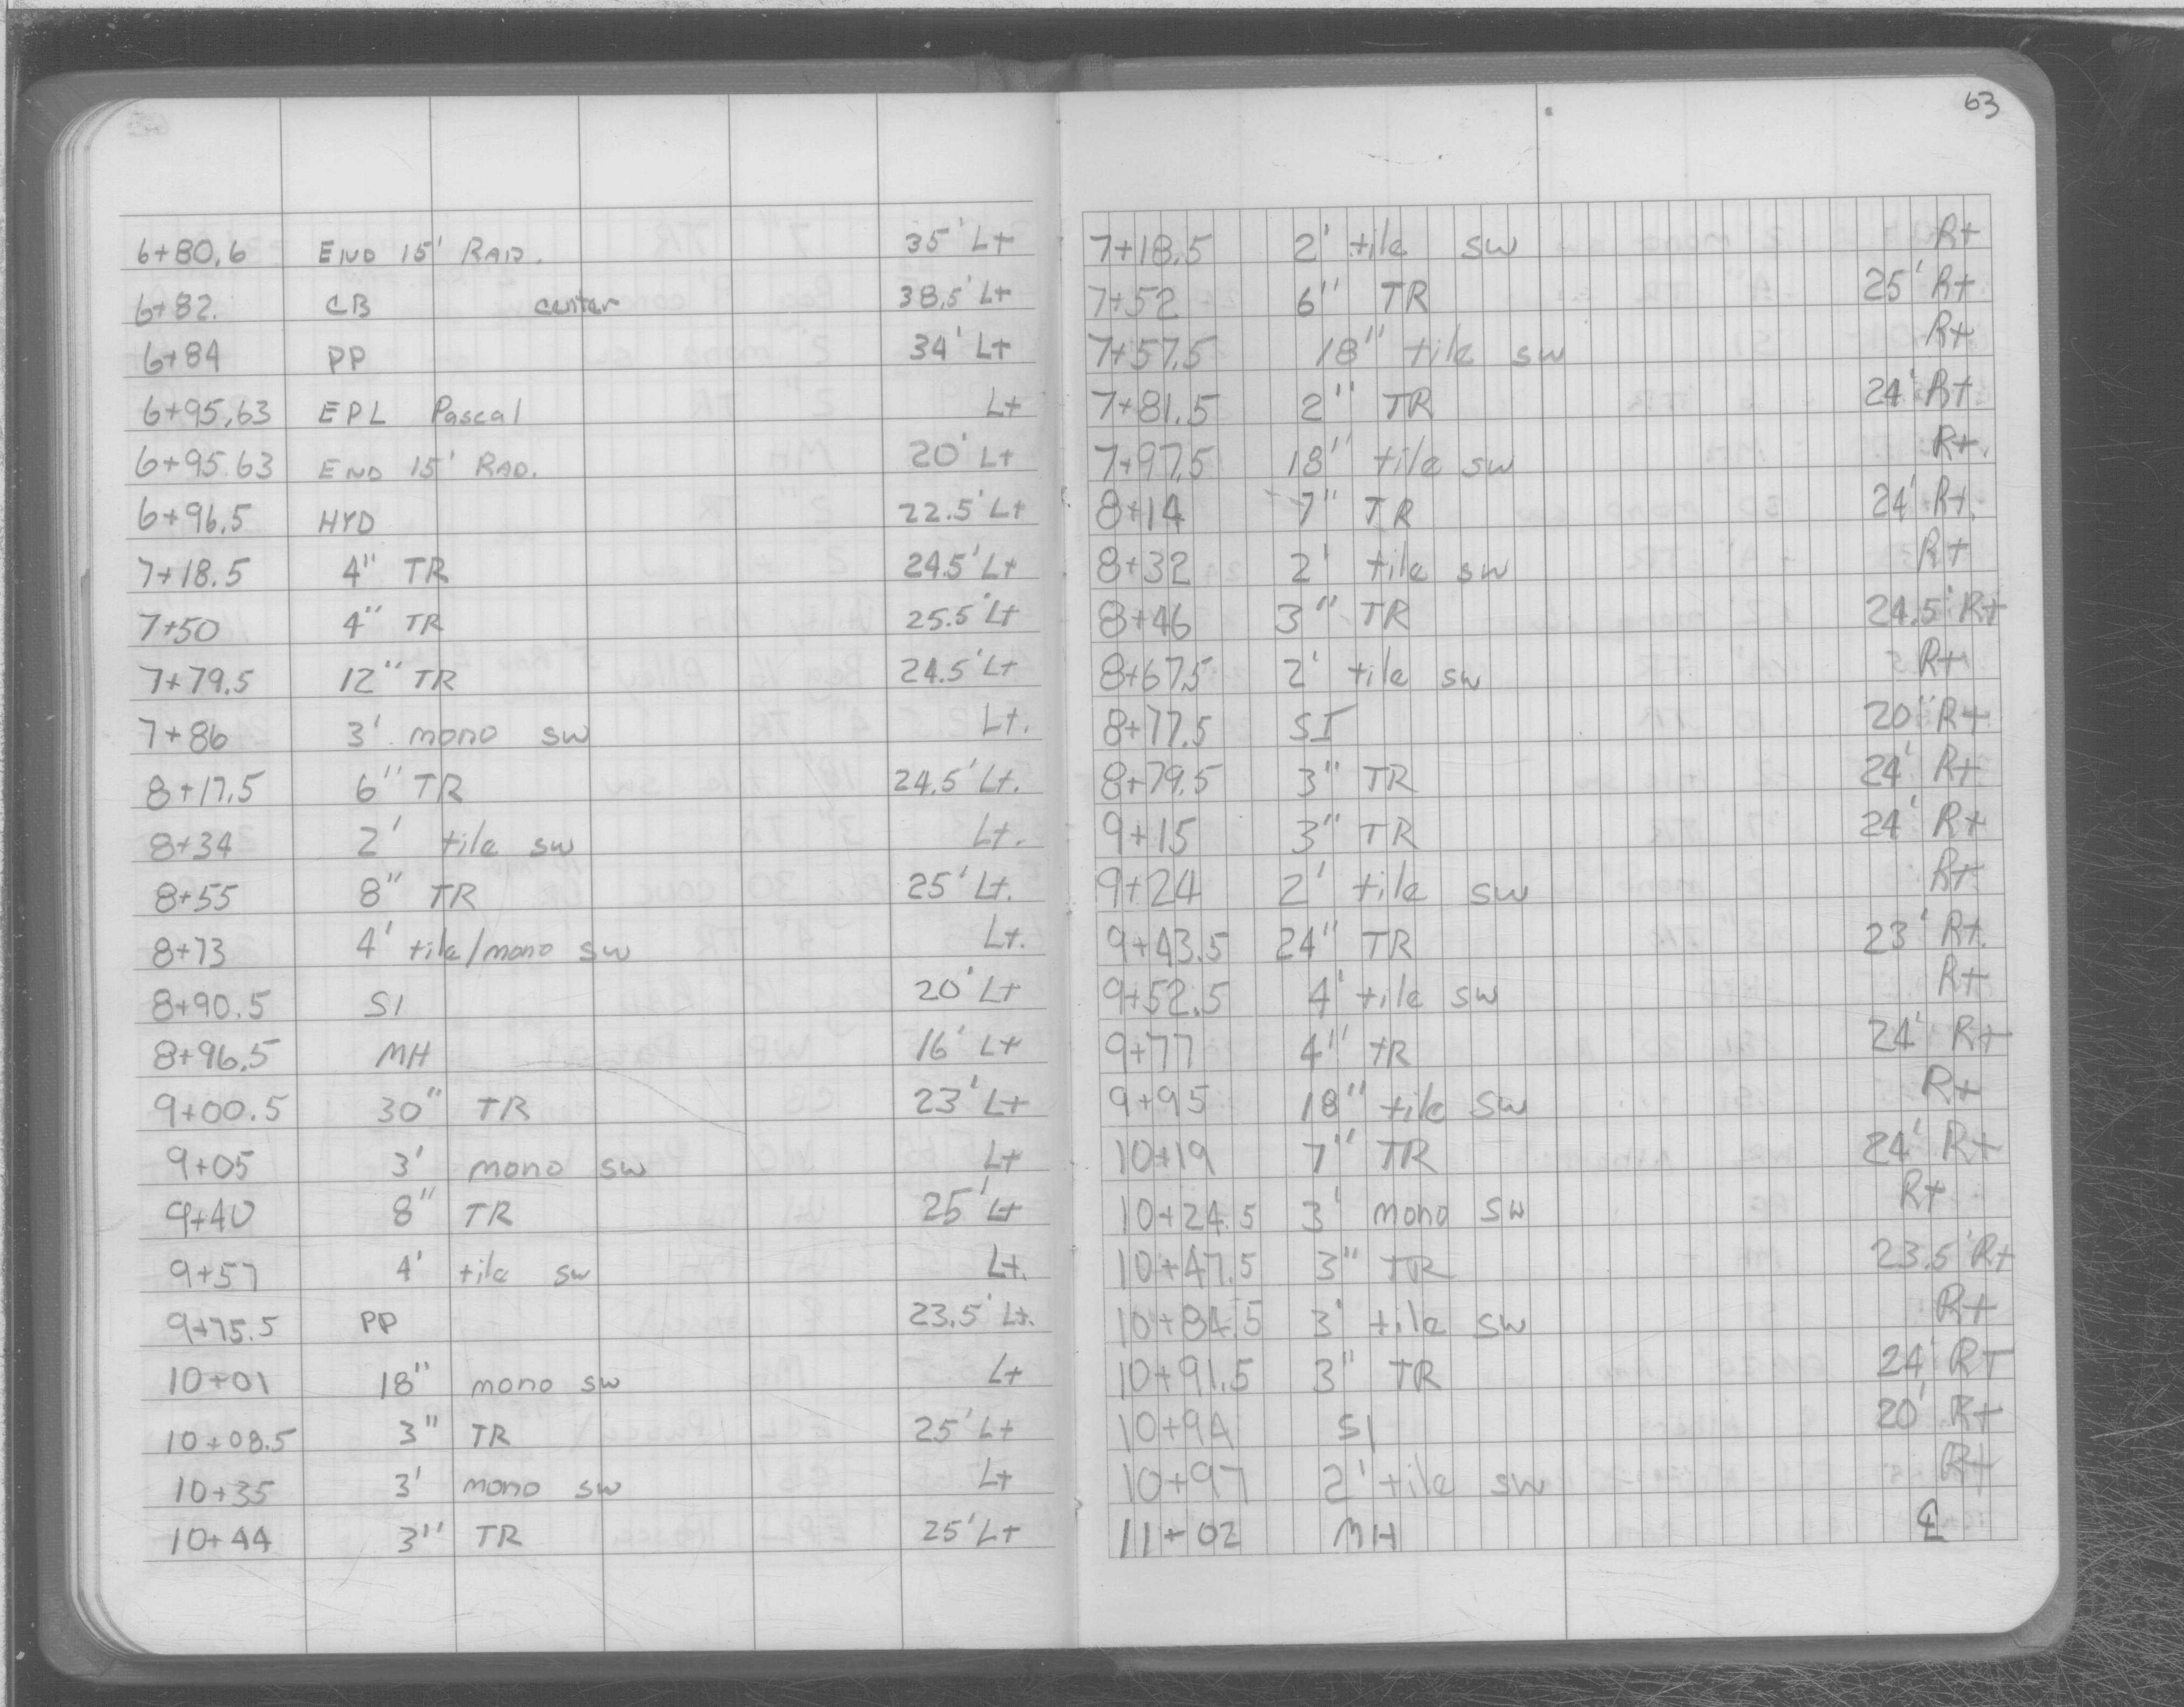 6+80.6 END 15' RAD. 35' Lt
6+82. CB center 38.5' Lt
6+84 PP 34' Lt
6+95.63 EPL Pascal Lt
6+95.63 END 15' RAD. 20' Lt
6+96.5 HYD 22.5' Lt
7+18.5 4" TR 24.5' Lt
7+50 4" TR 25.5' Lt
7+79.5 12" TR 24.5' Lt
7+86 3' mono sw Lt.
8+17.5 6" TR 24.5' Lt.
8+34 2' tile sw Lt.
8+55 8" TR 25' Lt.
8+73 4' tile/mono sw Lt.
8+90.5 SI 20' Lt
8+96.5 MH 16' Lt
9+00.5 30" TR 23' Lt
9+05 3' mono sw Lt
9+40 8" TR 25' Lt
9+57 4' tile sw Lt.
9+75.5 PP 23.5' Lt.
10+01 18" mono sw Lt
10+08.5 3" TR 25' Lt
10+35 3' mono sw Lt
10+44 3" TR 25' Lt
63
7+18.5 2' tile sw Rt
7+52 6" TR 25' Rt
7+57.5 18" tile sw Rt
7+81.5 2" TR 24' Rt
7+97.5 18" tile sw Rt.
8+14 7" TR 24' Rt.
8+32 2' tile sw Rt
8+46 3" TR 24.5' Rt
8+67.5 2' tile sw Rt
8+77.5 SI 20' Rt
8+79.5 3" TR 24' Rt
9+15 3" TR 24' Rt
9+24 2' tile sw Rt
9+43.5 24" TR 23' Rt.
9+52.5 4' tile sw Rt
9+77 4" TR 24' Rt
9+95 18" tile sw Rt
10+19 7" TR 24' Rt
10+24.5 3' mono sw Rt
10+47.5 3" TR 23.5' Rt
10+84.5 3' tile sw Rt
10+91.5 3" TR 24' RT
10+94 SI 20' Rt
10+97 2' tile sw Rt
11+02 MH ℄